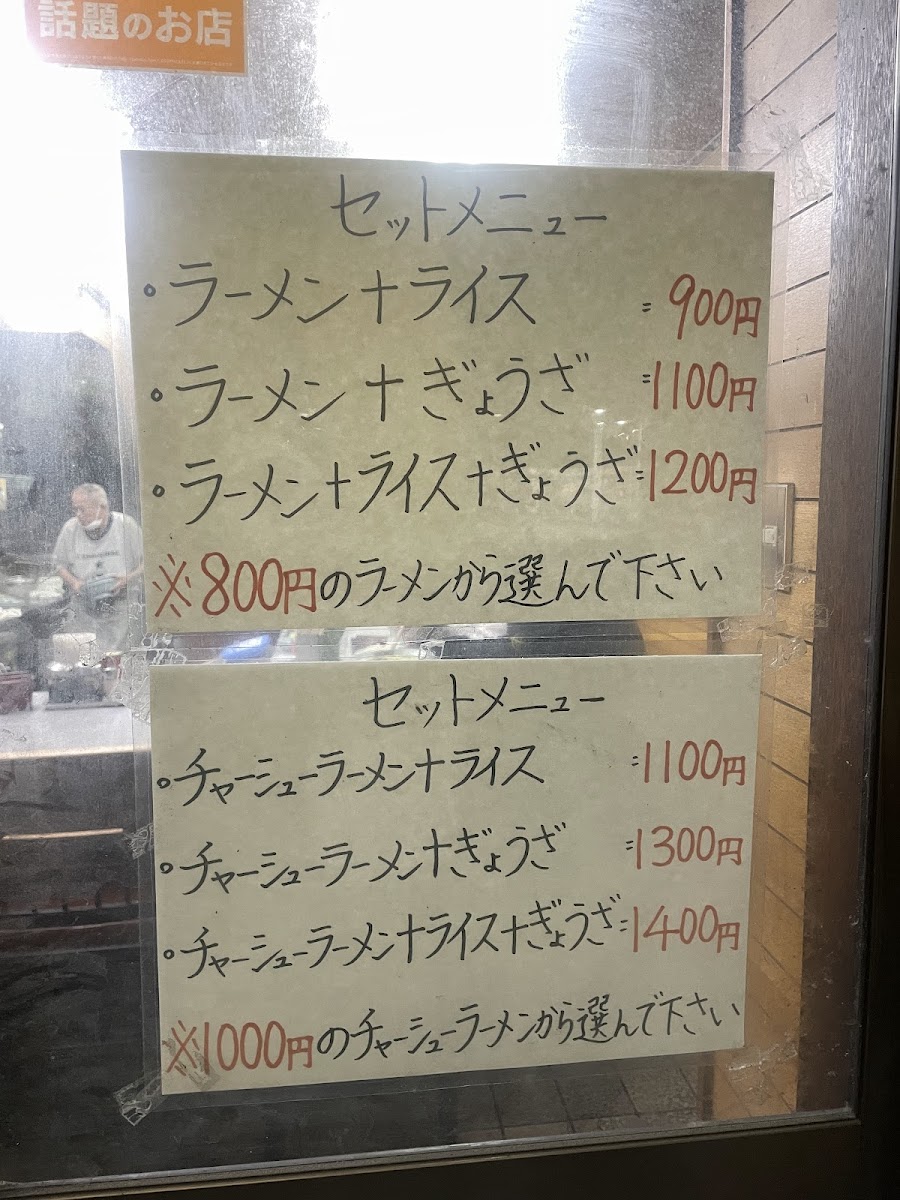 話題のお店
セットメニュー
・ラーメン+ライス =900円
・ラーメン+ぎょうざ =1100円
・ラーメン+ライス+ぎょうざ=1200円
※800円のラーメンから選んで下さい
セットメニュー
・チャーシューラーメン+ライス =1100円
・チャーシューラーメン+ぎょうざ =1300円
・チャーシューラーメン+ライス+ぎょうざ=1400円
※1000円のチャーシューラーメンから選んで下さい